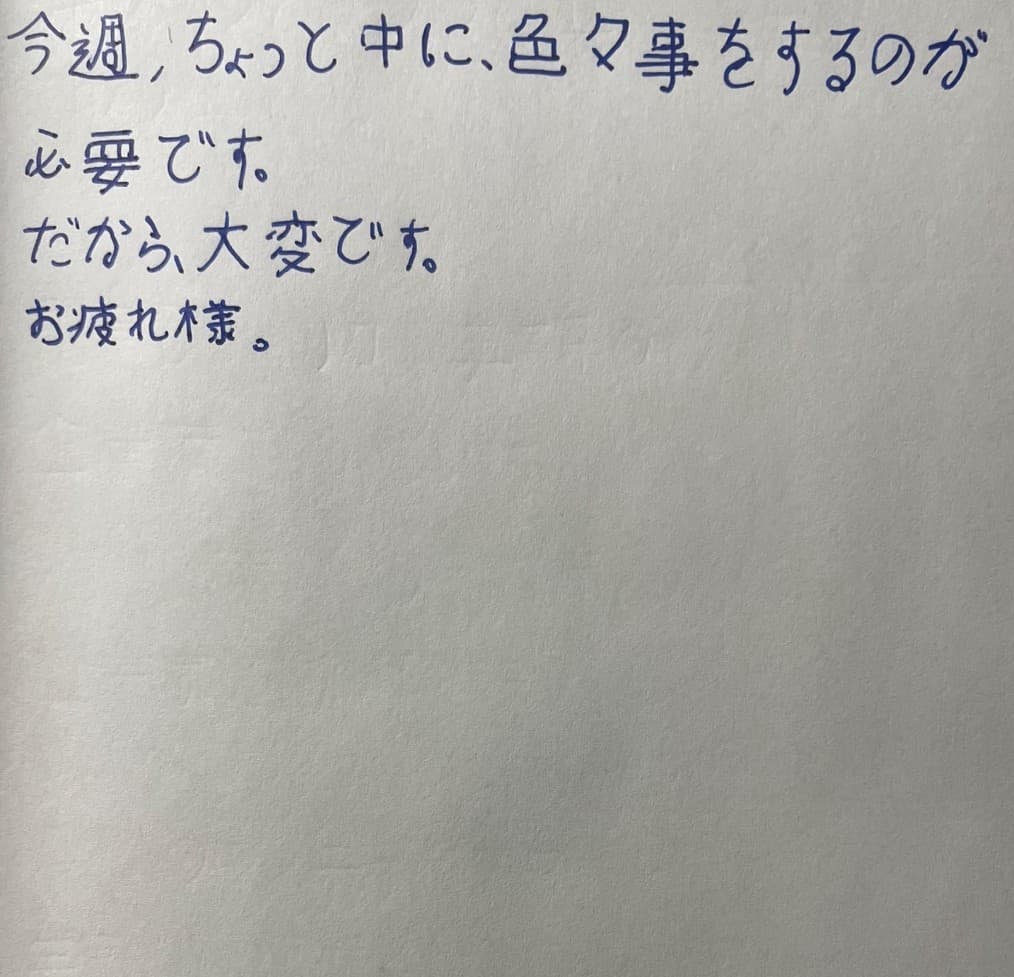 今週,ちょっと中に、色々事をするのが
必要です。
だから、大変です。
お疲れ様。